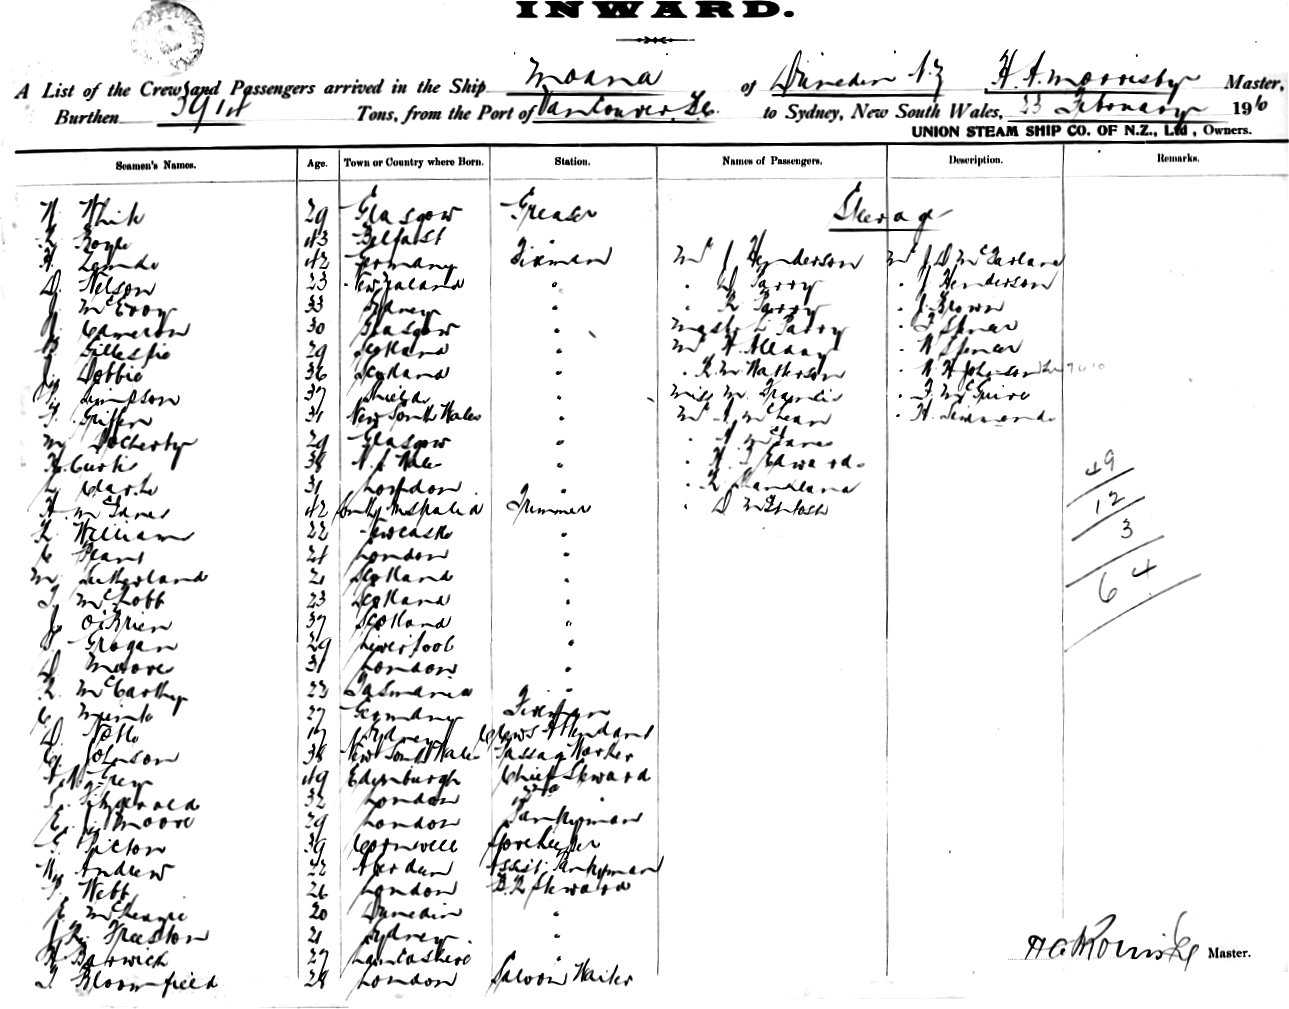 INWARD.
A List of the Crew and Passengers arrived in the Ship Moana of Dunedin N.Z H. A. Morrisby Master,
Burthen 3914 Tons, from the Port of Vancouver, B.C. to Sydney, New South Wales, 23 February 1910
UNION STEAM SHIP CO. OF N.Z., Ltd, Owners.
Seamen's Names. Age. Town or Country where Born. Station. Names of Passengers. Description. Remarks.
Steerage
White 29 Glasgow Greaser
R. Boyle 43 Belfast "
42 Germany Fireman Mr J Henderson Mr J D McFarland
D. Nelson 23 New Zealand " " D Parry " J Henderson
J. McEvoy 33 Sydney " " R Parry " J Brown
J. Cameron 30 Glasgow " Mastr L Parry " Spencer
Gillespie 29 Scotland " Mr H " N Spencer
J. Dobbie 36 Scotland " " R M " N H Johnson
Simpson 37 Shields " Miss M " F McGuire
T. Griffin 31 New South Wales " Mr A McLean " H.
M Docherty 29 Glasgow " "
H. Curtis 38 N. S Wales " " H J Edwards
Clarke 31 London " " R
H. McInnes 42 South Australia Trimmer " D McIntosh
R. William 22 Newcastle "
C 21 London "
M. Sutherland 21 Scotland "
T. McRobb 23 Scotland "
J. O'Brien 37 Scotland "
P. Grogan 29 Liverpool "
D Moore 31 London "
R. McCarthy 22 Tasmania "
C 27 Germany Fireman
D. 17 Sydney Crews Attendant
C. Johnson 38 New South Wales Passage Worker
Grey 49 Edinburgh Chief Steward
Fitzgerald 32 London 2nd "
E. J. Moore 29 London Pantryman
Picton 39 Cornwell Storekeeper
Andrew 22 Aberdeen Assist. Pantryman
P. Webb 26 London B. R Steward
E. 20 Dunedin "
J R. Preston 21 Sydney "
H Barwick 27 Lancashire "
T. Bloomfield 28 London Saloon Waiter
49
12
3
64
Master.